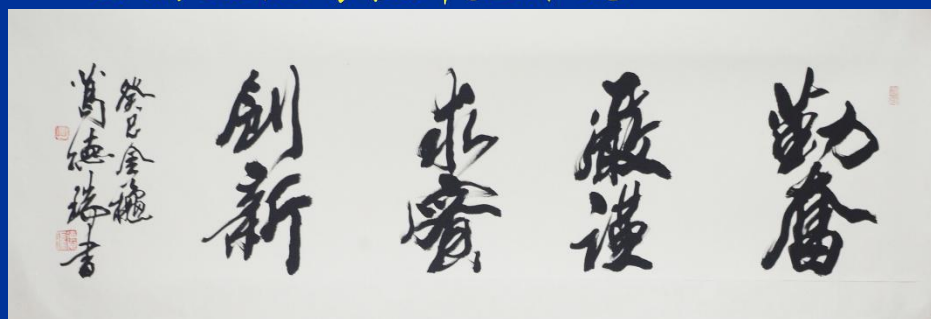 勤奮
嚴謹
求實
創新
癸巳金穐
德瑞書